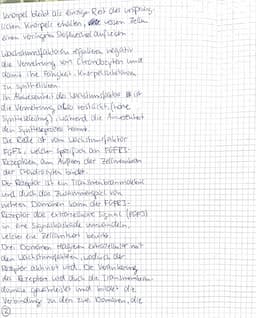 Knorpel bleibt als einziger Rest des ursprüng-
lichen Knorpels erhalten, dessen Zellen
einen verringerten Stoffwechsel aufweisen.
Wachstumsfaktoren regulieren negativ
die Vermehrung von Chondrozyten und
damit ihre Fähigkeit, Knorpelsubstanzen
zu synthetisieren.
In Abwesenheit des Wachstumsfaktor ist
die Vermehrung also verstärkt (hohe
Syntheseleistung), während die Anwesenheit
den Syntheseprozess hemmt.
Die Rolle ist vom Wachstumsfaktor
FGF2, welcher spezifisch an FGFR3-
Rezeptoren, am Äußeren der Zellmembran
der Chondrozyten bindet.
Der Rezeptor ist ein Transmembranmolekül
und durch das Zusammenspiel von
mehreren Domänen kann der FGFR3-
Rezeptor das extrazelluläre Signal (FGF2)
in eine Signalkaskade umwandeln,
welche eine Zellantwort bewirkt.
Drei Domänen reagieren extrazellulär mit
den Wachstumsfaktoren, wodurch der
Rezeptor aktiviert wird. Die Verankerung
des Rezeptors wird durch die Transmembran-
domäne gewährleistet und bildet die
Verbindung zu den zwei Domänen, die
2